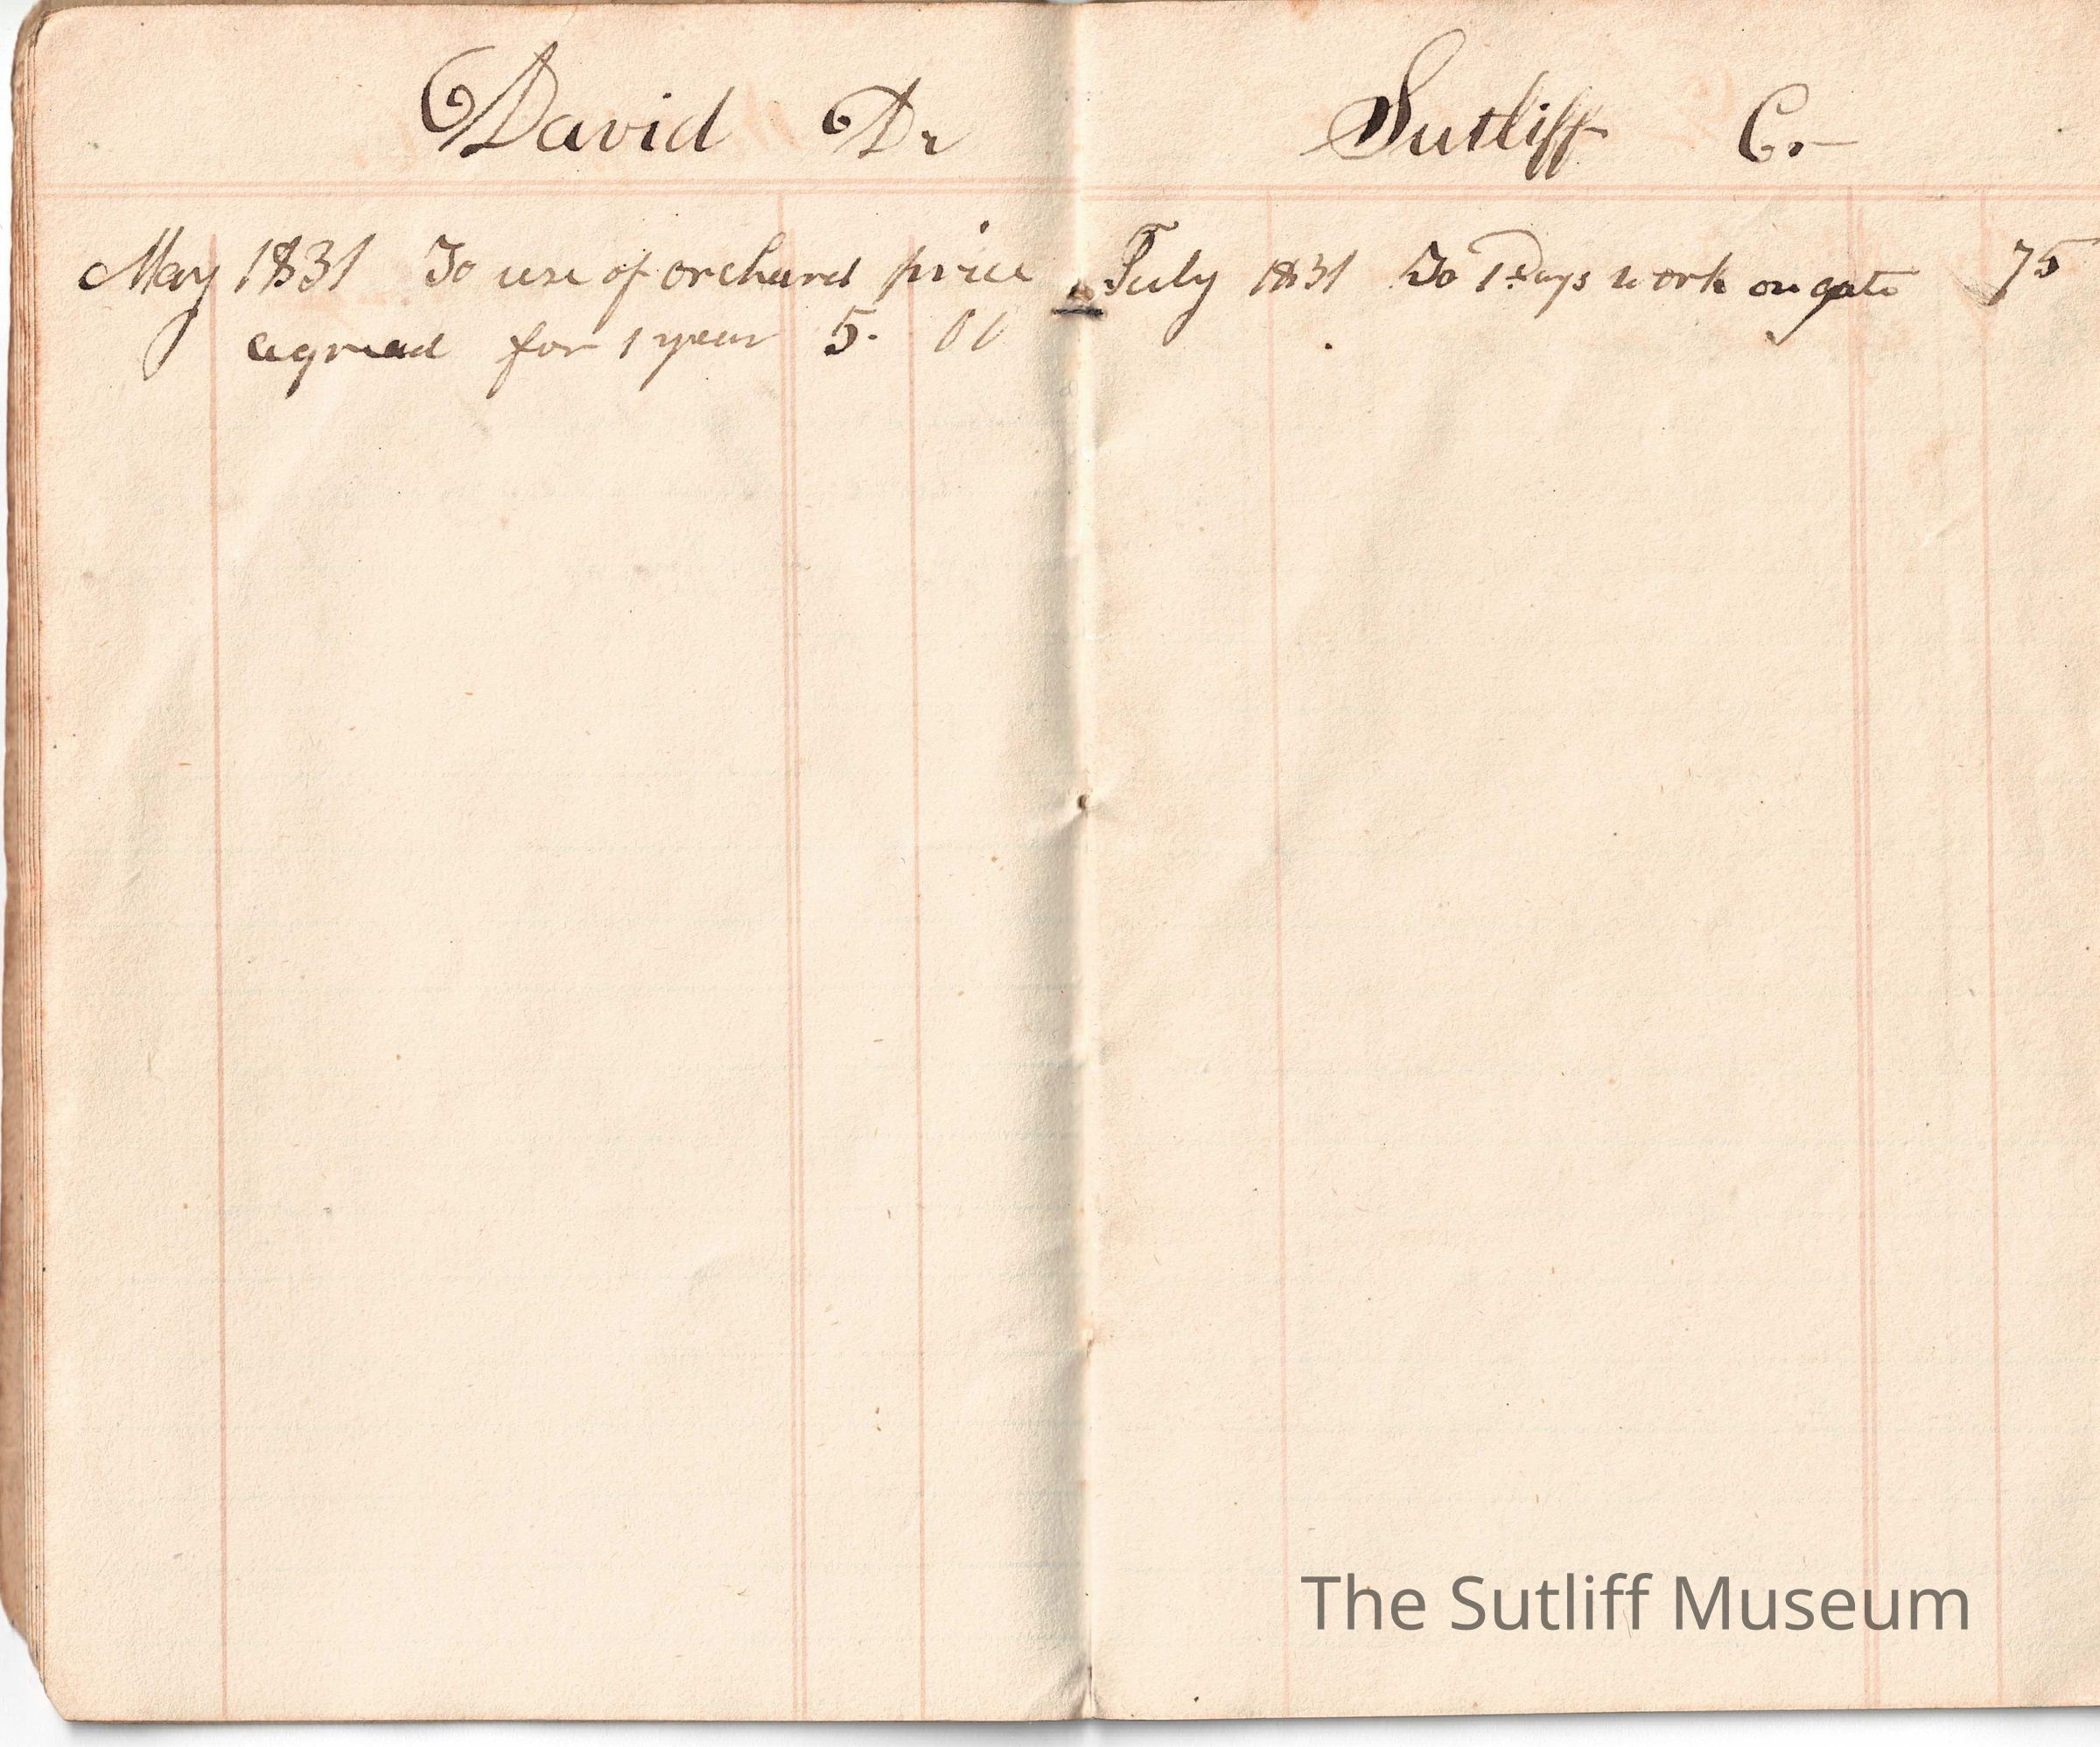 David Dr
May 1831 To use of orchard price
agread for 1 year 5. 00
Sutliff Cr
July 1831 To 1 Days work on gate 75
The Sutliff Museum